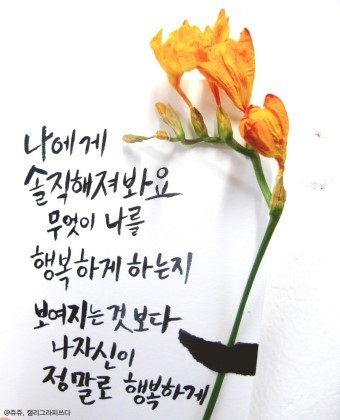 나에게
솔직해져봐요
무엇이 나를
행복하게 하는지
보여지는 것 보다
나자신이
정말로 행복하게
@쥬쥬, 캘리그라피쓰다